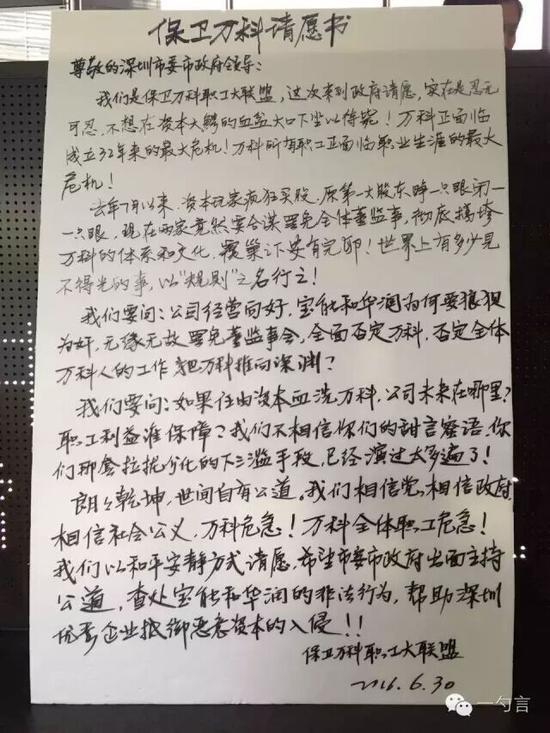 保卫万科请愿书
尊敬的深圳市委市政府领导：
我们是保卫万科职工大联盟，这次来到政府请愿，实在是忍无
可忍，不想在资本大鳄的血盆大口下坐以待毙！万科正面临
成立32年来的最大危机！万科所有职工正面临职业生涯的最大
危机！
去年7月以来，资本玩家疯狂买股，原第一大股东睁一只眼闭
一只眼，现在两家竟然要合谋罢免全体董监事，彻底搞垮
万科的体系和文化，覆巢之下安有完卵！世界上有多少见
不得光的事，以“规则”之名行之！
我们要问：公司经营向好，宝能和华润为何要狼狈
为奸，无缘无故罢免董监事会，全面否定万科，否定全体
万科人的工作，把万科推向深渊？
我们要问：如果任由资本血洗万科，公司未来在哪里？
职工利益谁保障？我们不相信你们的甜言蜜语，你
们那套拉拢分化的下三滥手段，已经演过太多遍了！
朗朗乾坤，世间自有公道。我们相信党，相信政府，
相信社会公义，万科危急！万科全体职工危急！
我们以和平安静方式请愿，希望市委市政府出面主持
公道，查处宝能和华润的非法行为，帮助深圳
优秀企业抵御恶意资本的入侵！！
保卫万科职工大联盟
2016.6.30
一勺言